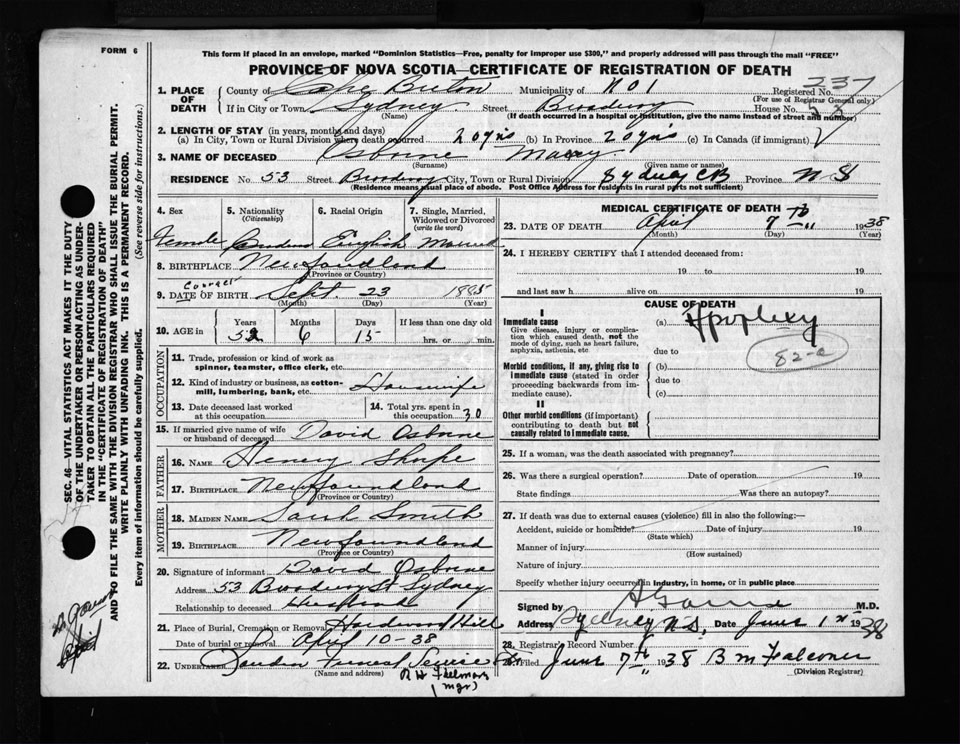 FORM 6
This form if placed in an envelope, marked "Dominion Statistics—Free, penalty for improper use $300," and properly addressed will pass through the mail "FREE"
PROVINCE OF NOVA SCOTIA—CERTIFICATE OF REGISTRATION OF DEATH
1. PLACE OF DEATH
County of Cape Breton Municipality of No 1 Registered No. 237
(For use of Registrar General only)
If in City or Town Sydney Street Broadway House No. 53
(Name) (If death occurred in a hospital or institution, give the name instead of street and number)
2. LENGTH OF STAY (in years, months and days)
(a) In City, Town or Rural Division where death occurred 20 yrs (b) In Province 20 yrs (c) In Canada (if immigrant)
3. NAME OF DECEASED Osborne
(Surname) (Given name or names)
RESIDENCE No. 53 Street Broadway City, Town or Rural Division Sydney CB Province N S
(Residence means usual place of abode. Post Office Address for residents in rural parts not sufficient)
4. Sex
Female
5. Nationality
(Citizenship)
6. Racial Origin
English
7. Single, Married, Widowed or Divorced
(write the word)
Married
8. BIRTHPLACE Newfoundland
(Province or Country)
Correct
9. DATE OF BIRTH Sept. 23 1885
(Month) (Day) (Year)
10. AGE in
Years Months Days If less than one day old
52 6 15 hrs. or min.
OCCUPATION
11. Trade, profession or kind of work as spinner, teamster, office clerk, etc.
12. Kind of industry or business, as cotton-mill, lumbering, bank, etc. Housewife
13. Date deceased last worked at this occupation
14. Total yrs. spent in this occupation 30
15. If married give name of wife or husband of deceased David Osborne
FATHER
16. NAME Henry Sharpe
17. BIRTHPLACE Newfoundland
(Province or Country)
MOTHER
18. MAIDEN NAME Sarah Smith
19. BIRTHPLACE Newfoundland
(Province or Country)
20. Signature of informant David Osborne
Address 53 Broadway St Sydney
Relationship to deceased Husband
21. Place of Burial, Cremation or Removal Hardwood Hill
Date of burial or removal April 10-38
22. UNDERTAKER Funeral Service
(Name and address)
mgr)
MEDICAL CERTIFICATE OF DEATH
23. DATE OF DEATH April 7th 1938
(Month) (Day) (Year)
24. I HEREBY CERTIFY that I attended deceased from:
19 to 19
and last saw h alive on 19
CAUSE OF DEATH
I
Immediate cause
Give disease, injury or complication which caused death, not the mode of dying, such as heart failure, asphyxia, asthenia, etc
(a) Apoplexy
82-a
due to
Morbid conditions, if any, giving rise to immediate cause (stated in order proceeding backwards from immediate cause).
(b)
due to
(c)
II
Other morbid conditions (if important) contributing to death but not causally related to immediate cause.
25. If a woman, was the death associated with pregnancy?
26. Was there a surgical operation? Date of operation 19
State findings Was there an autopsy?
27. If death was due to external causes (violence) fill in also the following:—
Accident, suicide or homicide? Date of injury 19
(State which)
Manner of injury
(How sustained)
Nature of injury
Specify whether injury occurred in industry, in home, or in public place
Signed by M.D.
Address Sydney N.S. Date June 1st 1938
28. Registrars Record Number
Filed June 7th 1938 B M Falconer
(Division Registrar)
SEC. 46—VITAL STATISTICS ACT MAKES IT THE DUTY OF THE UNDERTAKER OR PERSON ACTING AS UNDERTAKER TO OBTAIN ALL THE PARTICULARS REQUIRED IN THE "CERTIFICATE OF REGISTRATION OF DEATH" AND TO FILE THE SAME WITH THE DIVISION REGISTRAR WHO SHALL ISSUE THE BURIAL PERMIT.
WRITE PLAINLY WITH UNFADING INK. THIS IS A PERMANENT RECORD.
Every item of information should be carefully supplied. (See reverse side for instructions.)